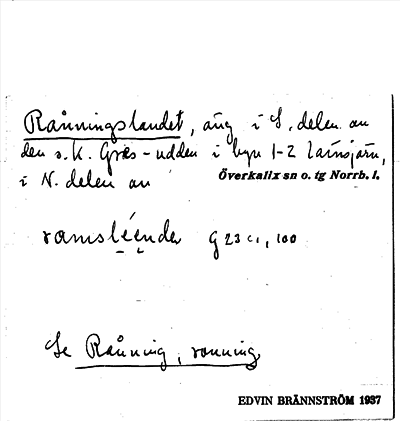 Rånningslandet, äng i S. delen av
den s.k. Gräs-udden i byn 1-2 Lansjärv,
i N. delen av Överkalix sn o. tg Norrb. l.
ramsléendẹr G 23 c1, 100
Se Rånning, ronning
EDVIN BRÄNNSTRÖM 1937